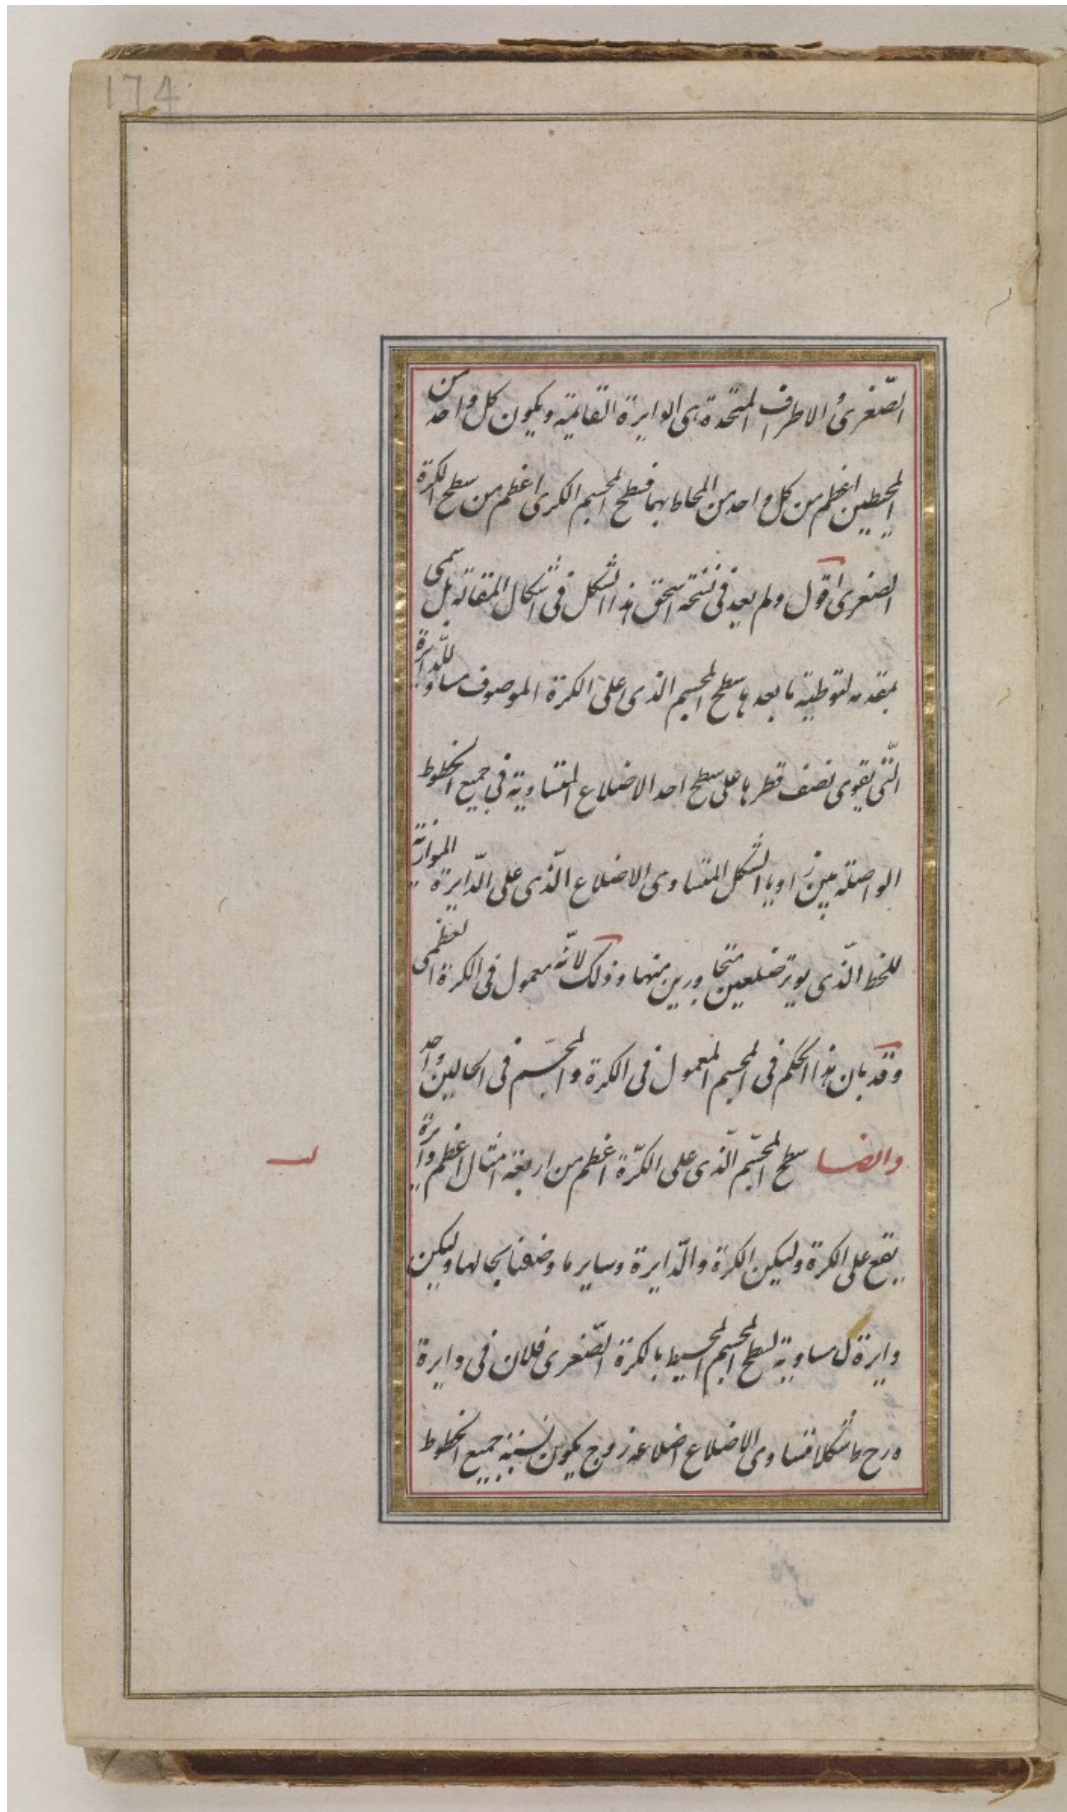 174
الصّغرى والاطراف المتحدة هى الدايرة القايمة ويكون كل واحد من
المحيطين اعظم من كل واحد من المحاط بهما فسطح المجسم الكرى اعظم من سطح الكرة
الصغرى اقول ولم يعد فى نسخة اسحق هذا الشكل فى اشكال المقالة بل سمى
بمقدمه لتوطية ما بعدها سطح المجسم الذى على الكرة الموصوف مساو للدايرة
الّتى يقوى نصف قطرها على سطح احد الاضلاع المتساوية فى جميع الخطوط
الواصلة بين زوايا الشكل المتساوى الاضلاع الّذى على الدّايرة الموازية
للخط الّذى يوتر ضلعين متجاورين منها وذلك لانّه معمول فى الكرة العظمى
وقد بان هذا الحكم فى المجسم المعمول فى الكرة والمجسّم فى الحالين واحد
وايضا سطح المجسّم الّذى على الكرّة اعظم من اربعة امثال اعظم دايرة
لب
يقع على الكرة وليكن الكرة والدّايرة وساير ما وضعنا بحالها وليكن
دايرة ل مساوية لسطح المجسم المحيط بالكرة الصّغرى فلان فى دايرة
ه رح ط شكلا متساوى الاضلاع اضلاعه زوج يكون نسبة جميع الخطوط